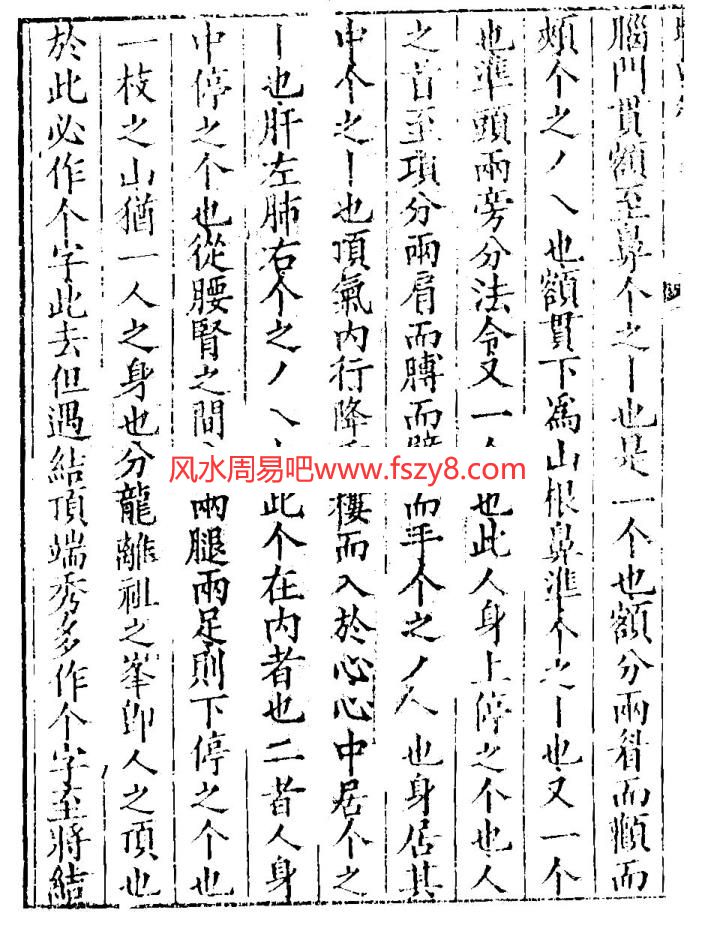 腦門貫額至鼻个之丨也是一个也額分兩眉而顴而
頰个之丿乀也額貫下為山根鼻準个之丨也又一个
也準頭兩旁分法令又一个也此人身上停之个也人
之首至項分兩肩而膊而臂而手个之丿乀也身居其
中个之丨也頂氣內行降樓而入於心心中居个之
丨也肝左肺右个之丿乀此个在內者也二者人身
中停之个也從腰腎之間兩腿兩足則下停之个也
一枝之山猶一人之身也分龍離祖之峯即人之頂也
於此必作个字此去但遇結頂端秀多作个字至將結
风水周易吧www.fszy8.com